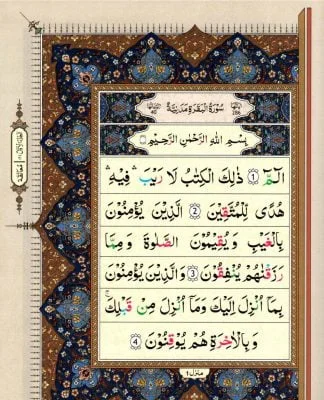 سُوْرَةُ الْبَقَرَةِ مَدَنِيَّةٌ
بِسْمِ اللّٰهِ الرَّحْمٰنِ الرَّحِيْمِ
الٓمّٓ ﴿1﴾ ذٰلِكَ الْكِتٰبُ لَا رَيْبَ ۛ فِيْهِ ۛ
هُدًى لِّلْمُتَّقِيْنَ ﴿2﴾ الَّذِيْنَ يُؤْمِنُوْنَ
بِالْغَيْبِ وَيُقِيْمُوْنَ الصَّلٰوةَ وَمِمَّا
رَزَقْنٰهُمْ يُنْفِقُوْنَ ﴿3﴾ وَالَّذِيْنَ يُؤْمِنُوْنَ
بِمَآ اُنْزِلَ اِلَيْكَ وَمَآ اُنْزِلَ مِنْ قَبْلِكَ ۚ
وَبِالْاٰخِرَةِ هُمْ يُوْقِنُوْنَ ﴿4﴾
منزل ۱